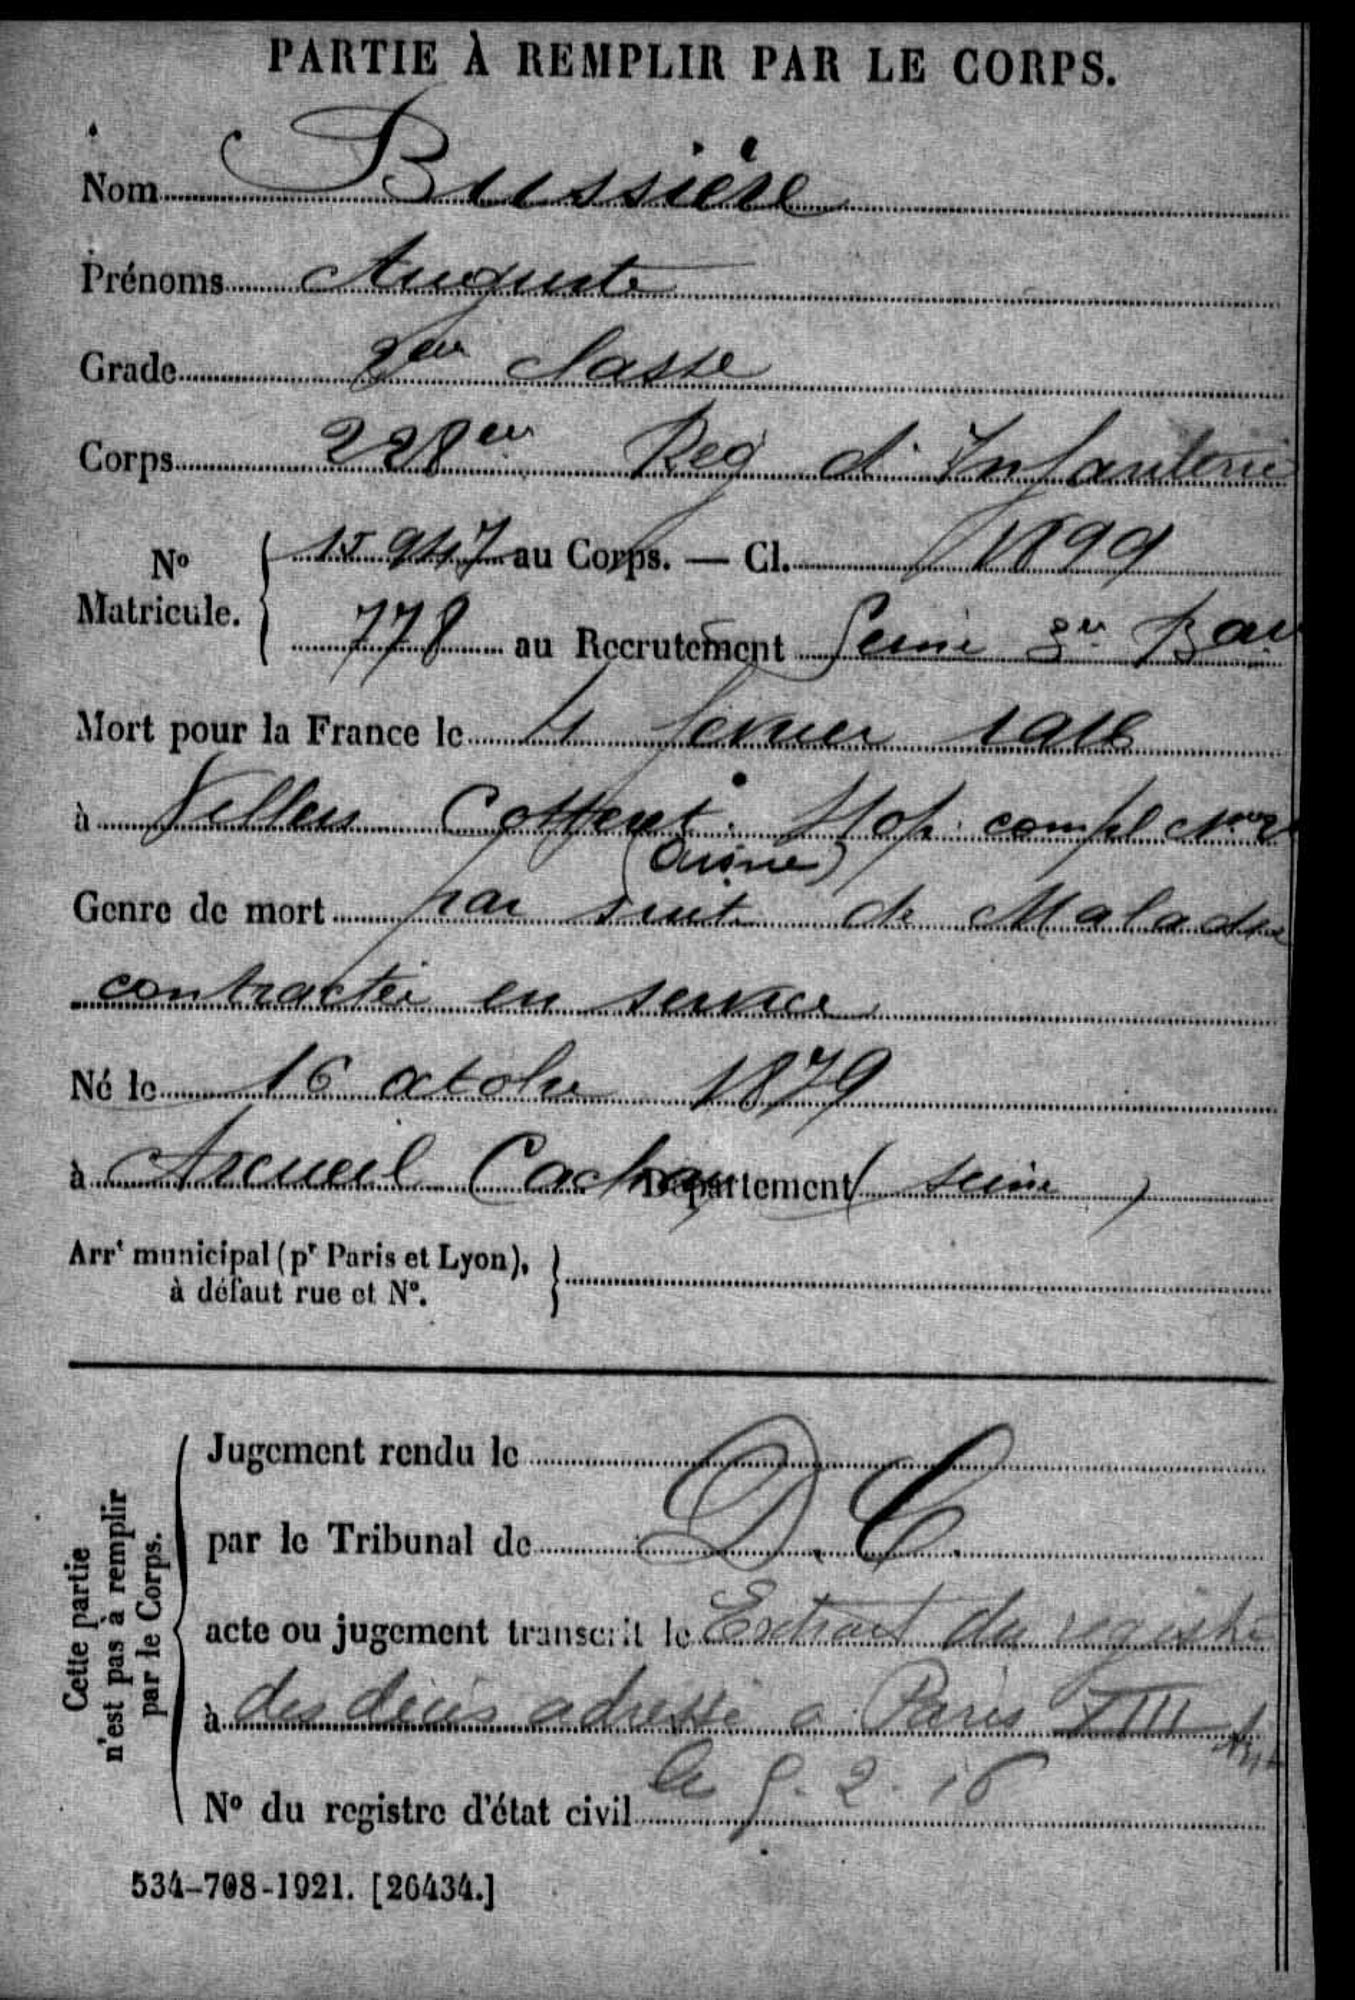 PARTIE À REMPLIR PAR LE CORPS.
Nom Bussière
Prénoms Auguste
Grade 2em classe
Corps 228em Reg d'Infanterie
No Matricule. 15 917 au Corps. — Cl. 1899
778 au Recrutement Seine 3e Bau
Mort pour la France le 4 fevrier 1916
à Villers Cotteret. Hop. compl
(Aisne)
Genre de mort par suite de Maladie
contractée en service
Né le 16 octobre 1879
à Arcueil Cachan Département (Seine)
Arrt municipal (pr Paris et Lyon),
à défaut rue et No.
Cette partie
n'est pas à remplir
par le Corps.
Jugement rendu le
par le Tribunal de D. C.
acte ou jugement transcrit le Extrait du registre
à des décès adressé a Paris XIII Arr
le 9.2.16
No du registre d'état civil
534-708-1921. [26434.]